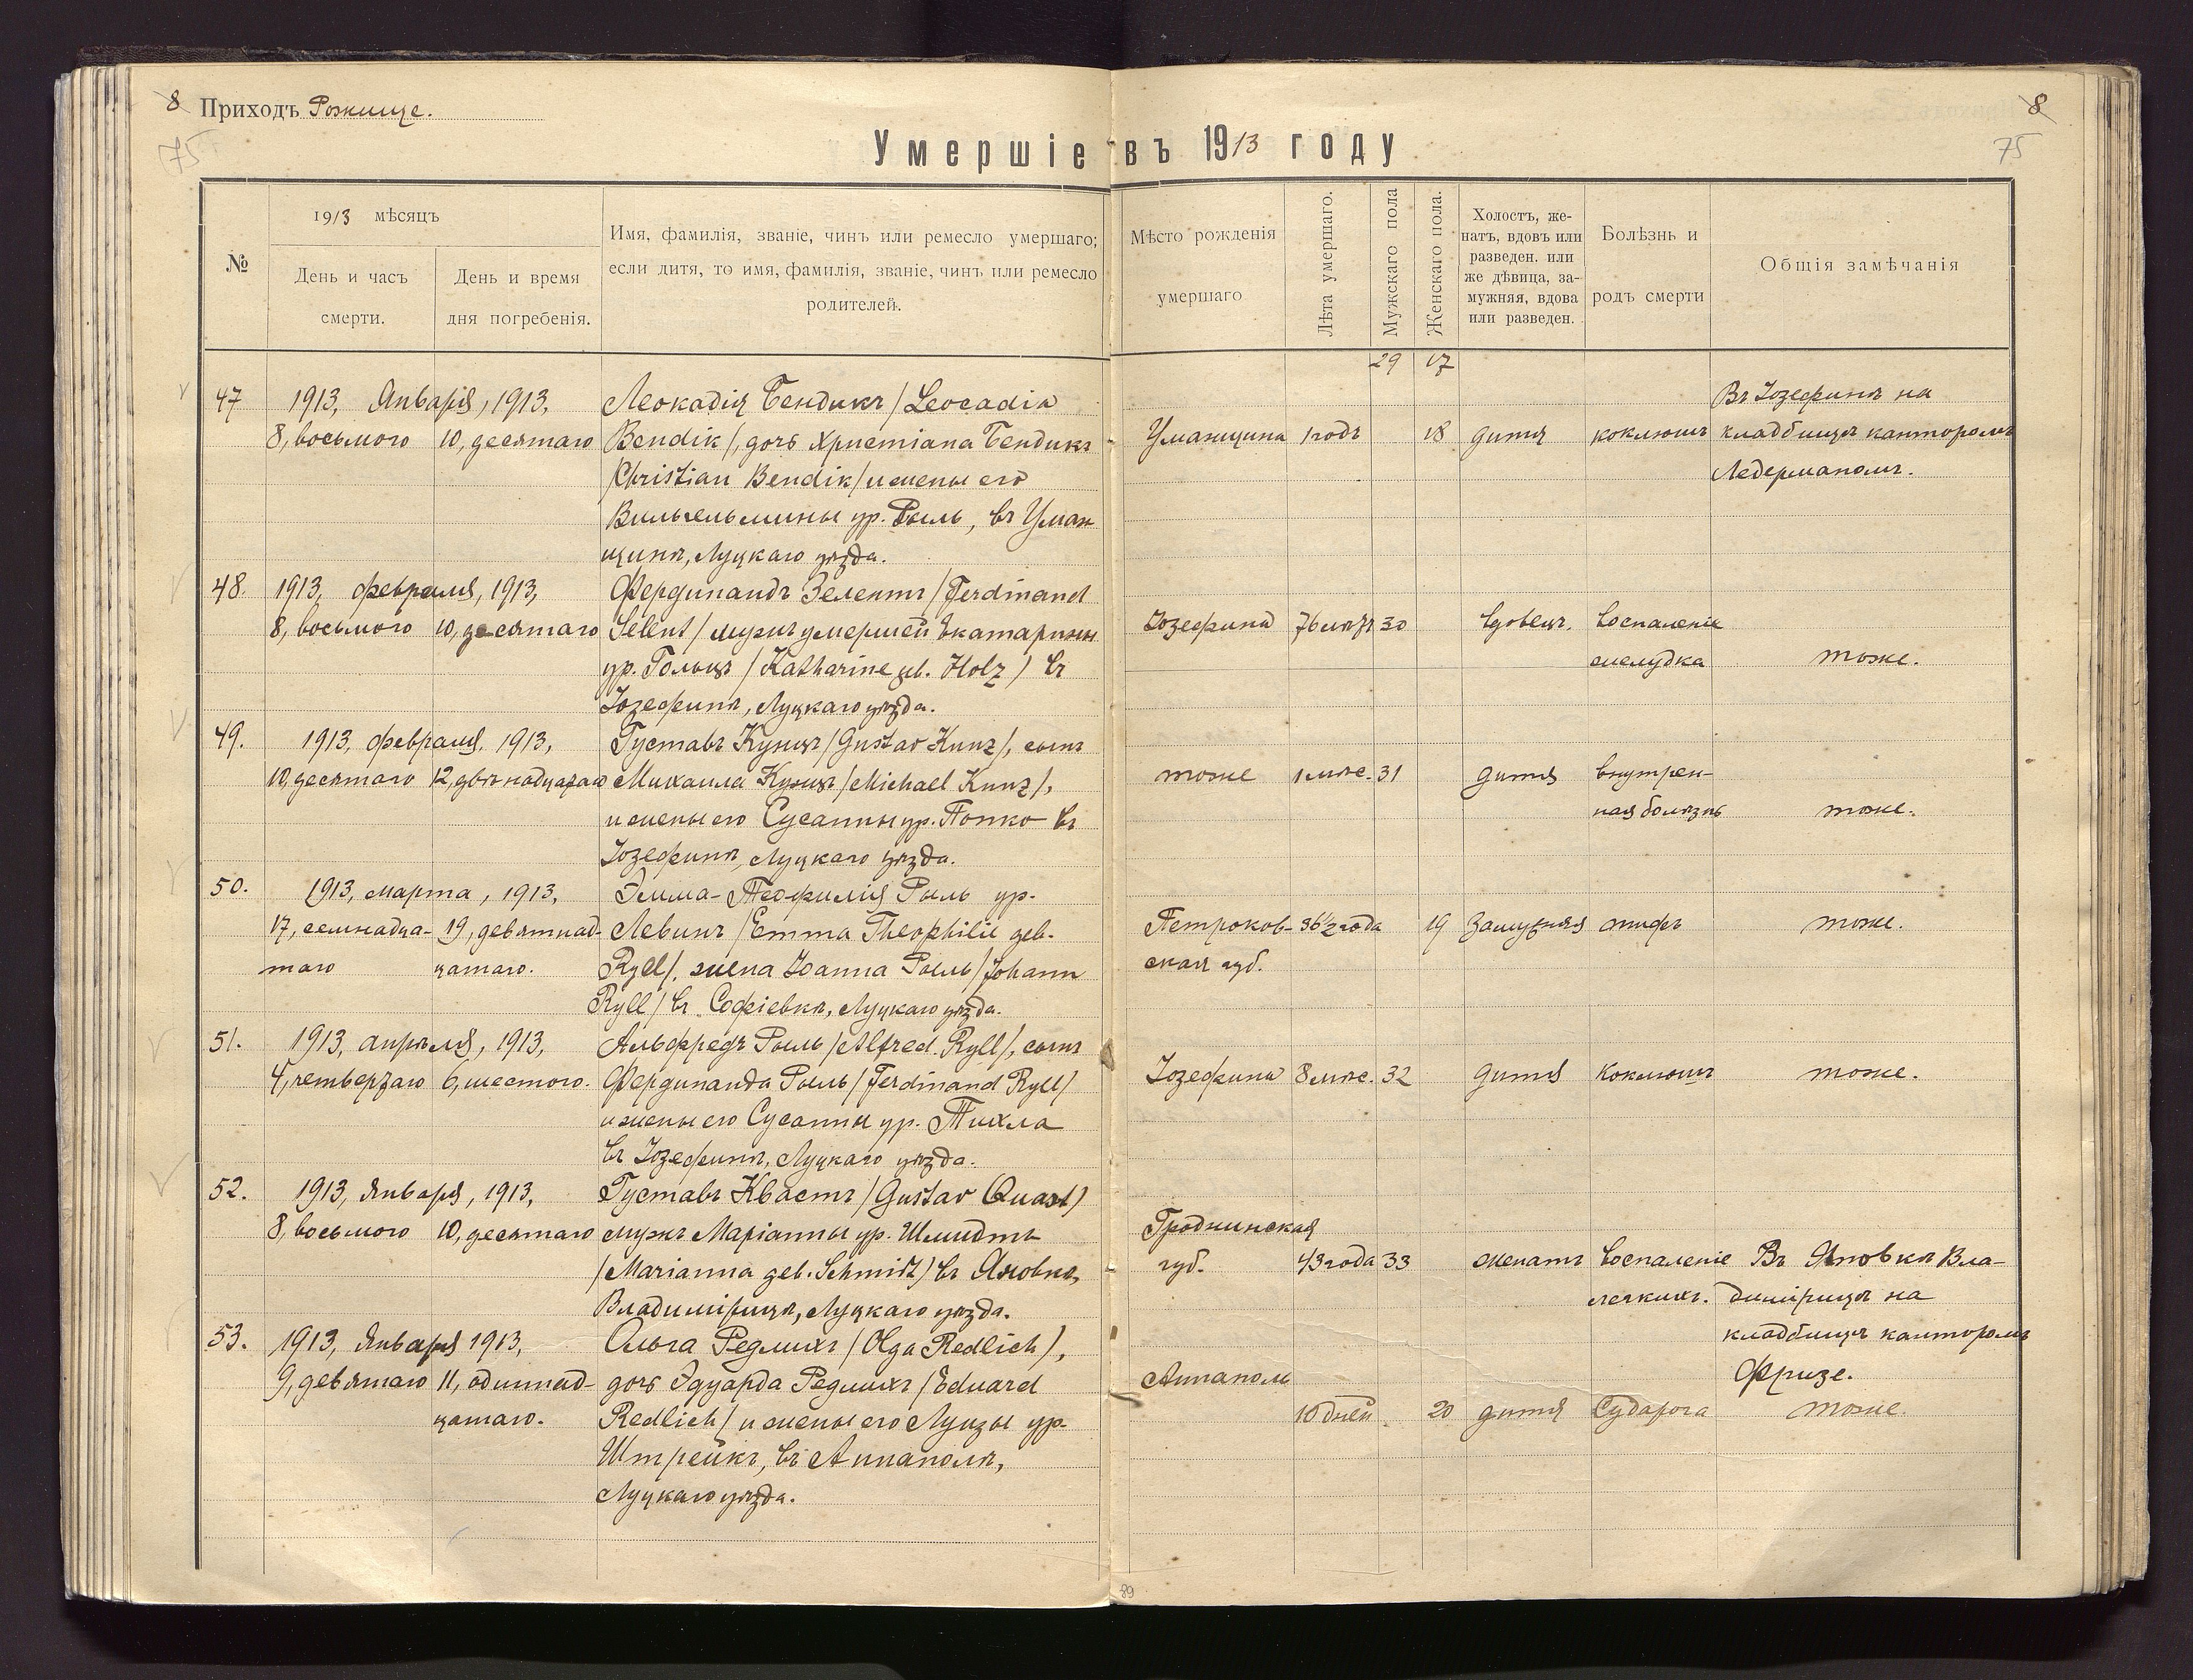 8 Приходъ Рожище. 8
75 75
Умершіе въ 1913 году
№
1913 мѣсяцъ
День и часъ смерти.
День и время дня погребенія.
Имя, фамилія, званіе, чинъ или ремесло умершаго;
если дитя, то имя, фамилія, званіе, чинъ или ремесло
родителей.
Мѣсто рожденія
умершаго
Лѣта умершаго.
Мужскаго пола
Женскаго пола.
Холостъ, же-
натъ, вдовъ или
разведен. или
же дѣвица, за-
мужняя, вдова
или разведен.
Болѣзнь и
родъ смерти
Общія замѣчанія
29 17
47 1913, Января, 1913,
8, восьмого 10, десятаго
Леокадія Бендикъ /Leocadia
Bendik/, дочь Христіана Бендикъ
/Christian Bendik/ и жены его
Вильгельмины ур. Рыль, въ Уман
щинѣ, Луцкаго уѣзда.
Уманщина 1 годъ 18 дитя коклюшъ
Въ Іозефинѣ на
кладбищѣ канторомъ
Ледерманомъ.
48. 1913, февраля, 1913,
8, восьмого 10, десятаго
Фердинандъ Зелентъ /Ferdinand
Selent/ мужъ умершей Екатарины
ур. Гольцъ /Katharine geb. Holz/ въ
Іозефинѣ, Луцкаго уѣзда.
Іозефина 76 лѣтъ 30 вдовецъ. воспаленіе
желудка тоже.
49. 1913, февраля, 1913,
10, десятаго 12, двѣнадцатаго
Густавъ Кунцъ /Gustav Kunz/, сынъ
Михаила Кунцъ /Michael Kunz/,
и жены его Сусанны ур. Попко въ
Іозефинѣ, Луцкаго уѣзда.
тоже 1 мѣс. 31 дитя внутрен-
ная болѣзнь тоже.
50. 1913, марта, 1913,
17, семнадца- 19, девятнад-
таго цатаго.
Эмма-Теофилія Рыль ур.
Левинъ /Emma Theophilie geb.
Ryll/, жена Іоанна Рыль /Johann
Ryll/ въ Софіевкѣ, Луцкаго уѣзда.
Петроков- 36 1/2 года 19 замужняя тифъ тоже.
ская губ.
51. 1913, апрѣля, 1913,
4, четвертаго 6, шестого.
Альфредъ Рыль /Alfred Ryll/, сынъ
Фердинанда Рыль /Ferdinand Ryll/
и жены его Сусанны ур. Тихла
въ Іозефинѣ, Луцкаго уѣзда.
Іозефина 8 мѣс. 32 дитя коклюшъ тоже.
52. 1913, Января, 1913,
8, восьмого 10, десятаго
Густавъ Квастъ /Gustav Quast/
мужъ Маріанны ур. Шмидтъ
/Marianna geb. Schmidt/ въ Яновкѣ,
Владимірицѣ, Луцкаго уѣзда.
Гродненская
губ. 43 года 33 женатъ воспаленіе
легкихъ.
Въ Яновкѣ Вла-
димірицѣ на
кладбищѣ канторомъ
Фризе.
53. 1913, Января 1913,
9, девятаго 11, одиннад-
цатаго.
Ольга Редлихъ /Olga Redlich/,
дочь Эдуарда Редлихъ /Eduard
Redlich/ и жены его Луизы ур.
Штрейкъ, въ Аннаполѣ,
Луцкаго уѣзда.
Аннаполь
10 дней 20 дитя Судорога тоже.
89